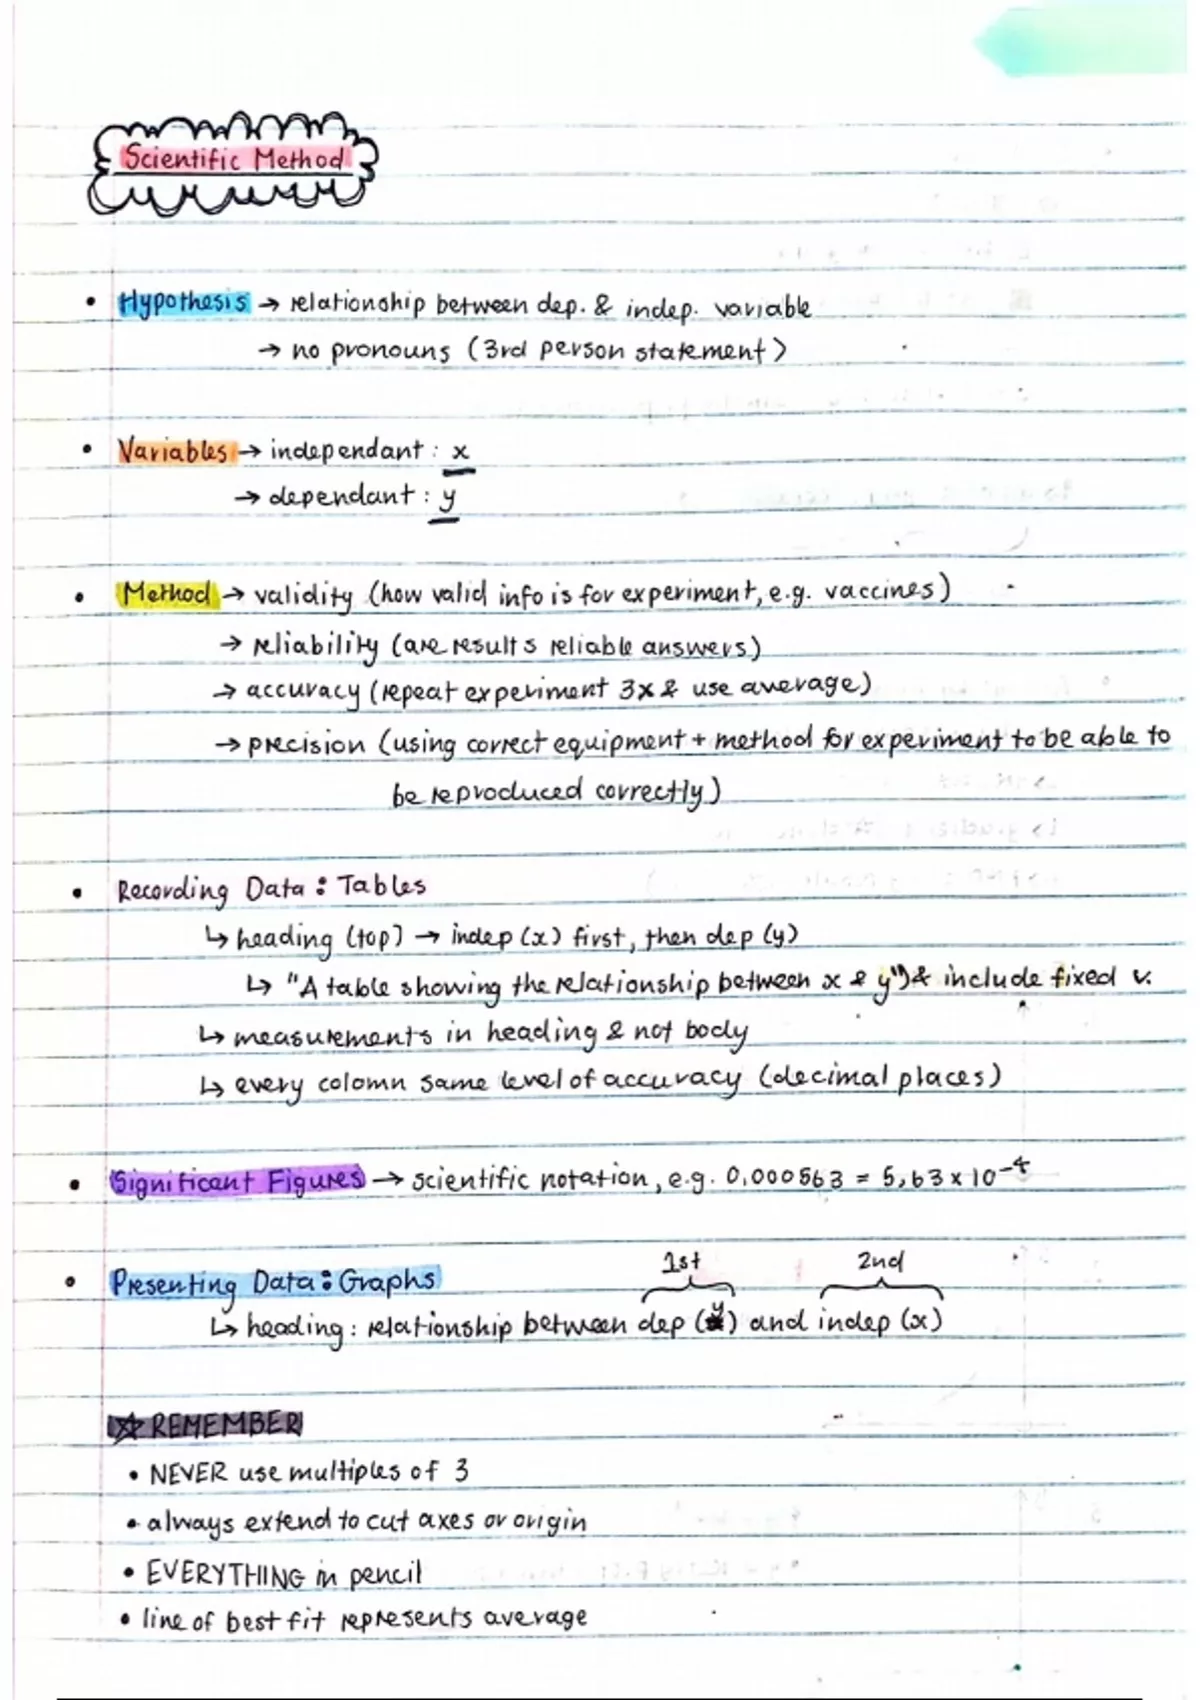 Scientific Method
• Hypothesis → relationship between dep. & indep. variable
→ no pronouns (3rd person statement)
• Variables → independant : x
→ dependant : y
• Method → validity (how valid info is for experiment, e.g. vaccines)
→ reliability (are results reliable answers)
→ accuracy (repeat experiment 3x & use average)
→ precision (using correct equipment + method for experiment to be able to
be reproduced correctly)
• Recording Data : Tables
↳ heading (top) → indep (x) first, then dep (y)
↳ "A table showing the relationship between x & y") & include fixed v.
↳ measurements in heading & not body
↳ every colomn same level of accuracy (decimal places)
• Significant Figures → scientific notation, e.g. 0,000563 = 5,63 x 10⁻⁴
1st 2nd
• Presenting Data : Graphs
↳ heading : relationship between dep (y) and indep (x)
☆ REMEMBER
• NEVER use multiples of 3
• always extend to cut axes or origin
• EVERYTHING in pencil
• line of best fit represents average